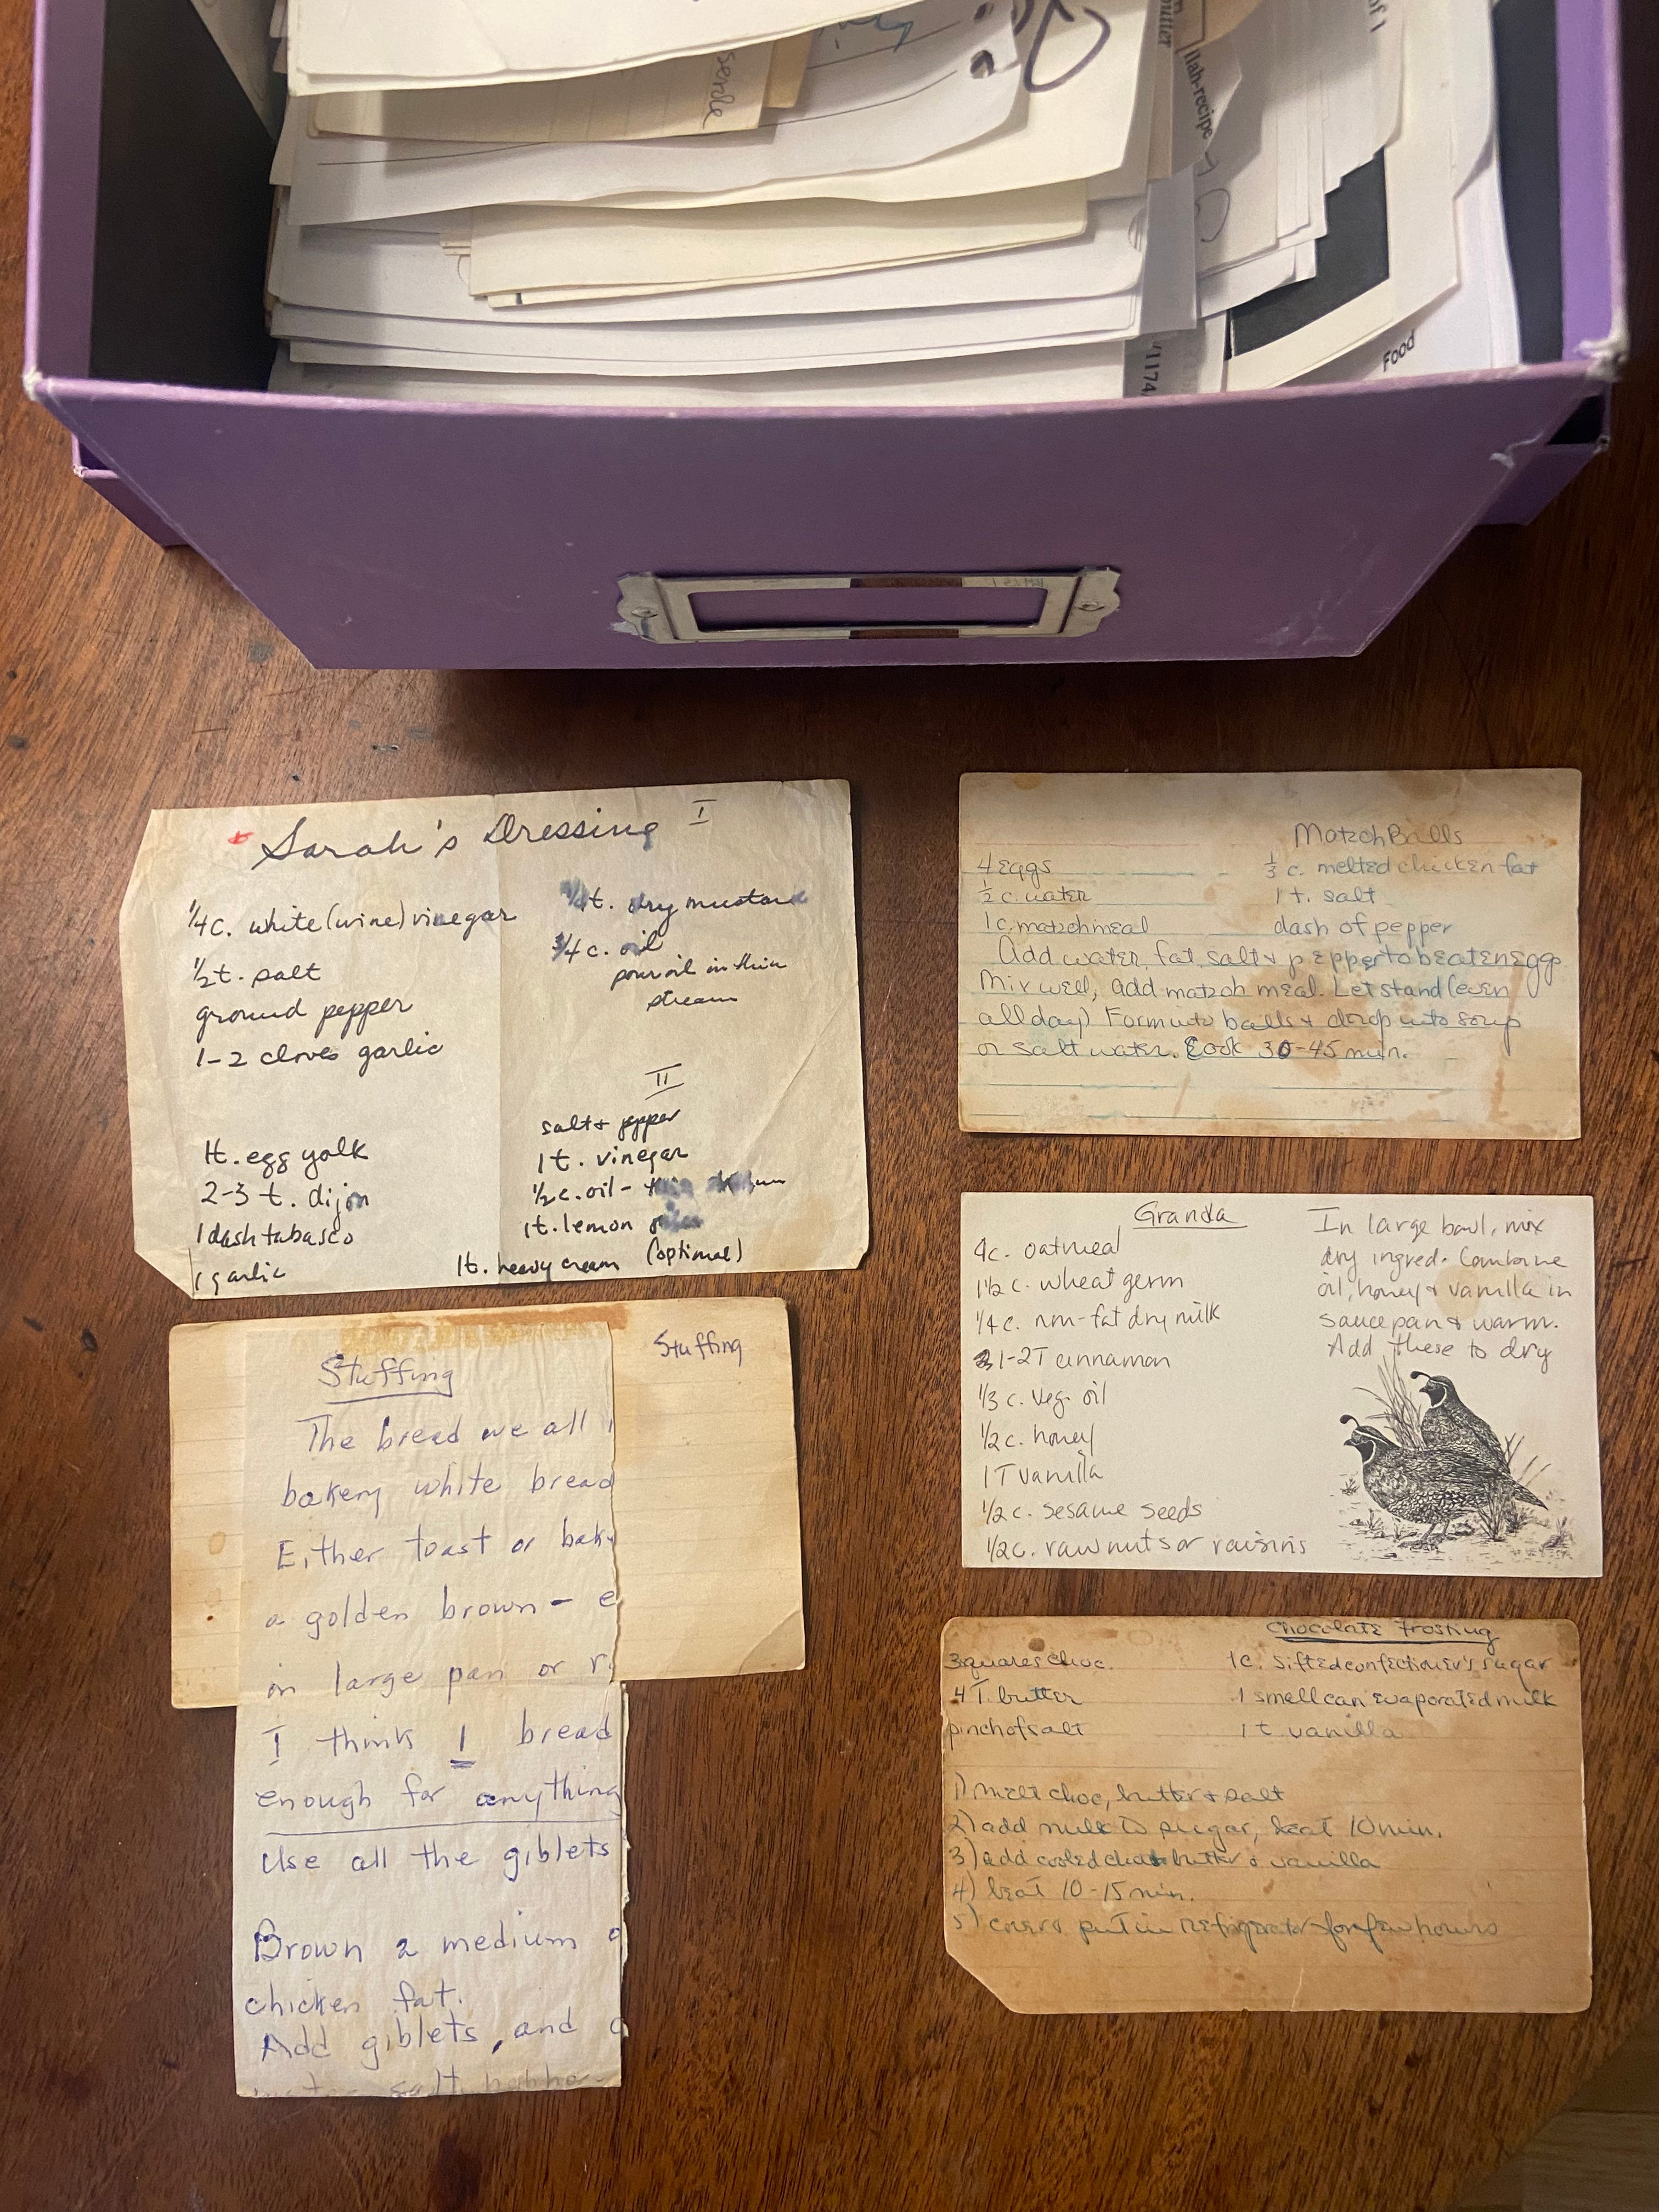 serole
llah-recipe
of 1
Food
1174
Sarah's Dressing I
1/4 c. white (wine) vinegar
1/2 t. salt
ground pepper
1-2 cloves garlic
1/4 t. dry mustard
3/4 c. oil
pour oil in thin
stream
II
1t. egg yolk
2-3 t. dijon
1 dash tabasco
1 garlic
salt + pepper
1 t. vinegar
1/2 c. oil - thin
1t. lemon
1t. heavy cream (optional)
Matzoh Balls
4 eggs
1/3 c. melted chicken fat
1/2 c. water
1 t. salt
1 c. matzohmeal
dash of pepper
Add water, fat, salt & pepper to beaten egg
Mix well, add matzoh meal. Let stand (even
all day) Form into balls & drop into soup
or salt water. Cook 30-45 min.
Granola
4c. oatmeal
1 1/2 c. wheat germ
1/4 c. non-fat dry milk
1-2T cinnamon
1/3 c. veg. oil
1/2 c. honey
1 T vanilla
1/2 c. sesame seeds
1/2 c. raw nuts or raisins
In large bowl, mix
dry ingred. Combine
oil, honey & vanilla in
saucepan & warm.
Add these to dry
Stuffing
Stuffing
The bread we all
bakery white bread
Either toast or bake
a golden brown - e
in large pan or r
I think 1 bread
enough for anything
Use all the giblets
Brown 2 medium o
chicken fat.
Add giblets, and
salt
Chocolate Frosting
3 squares choc.
1c. sifted confectioner's sugar
4 T. butter
1 small can evaporated milk
pinch of salt
1 t vanilla
1) melt choc, butter & salt
2) add milk to sugar, beat 10 min.
3) add cooled choc butter & vanilla
4) beat 10-15 min.
5) cover & put in refrigerator for few hours